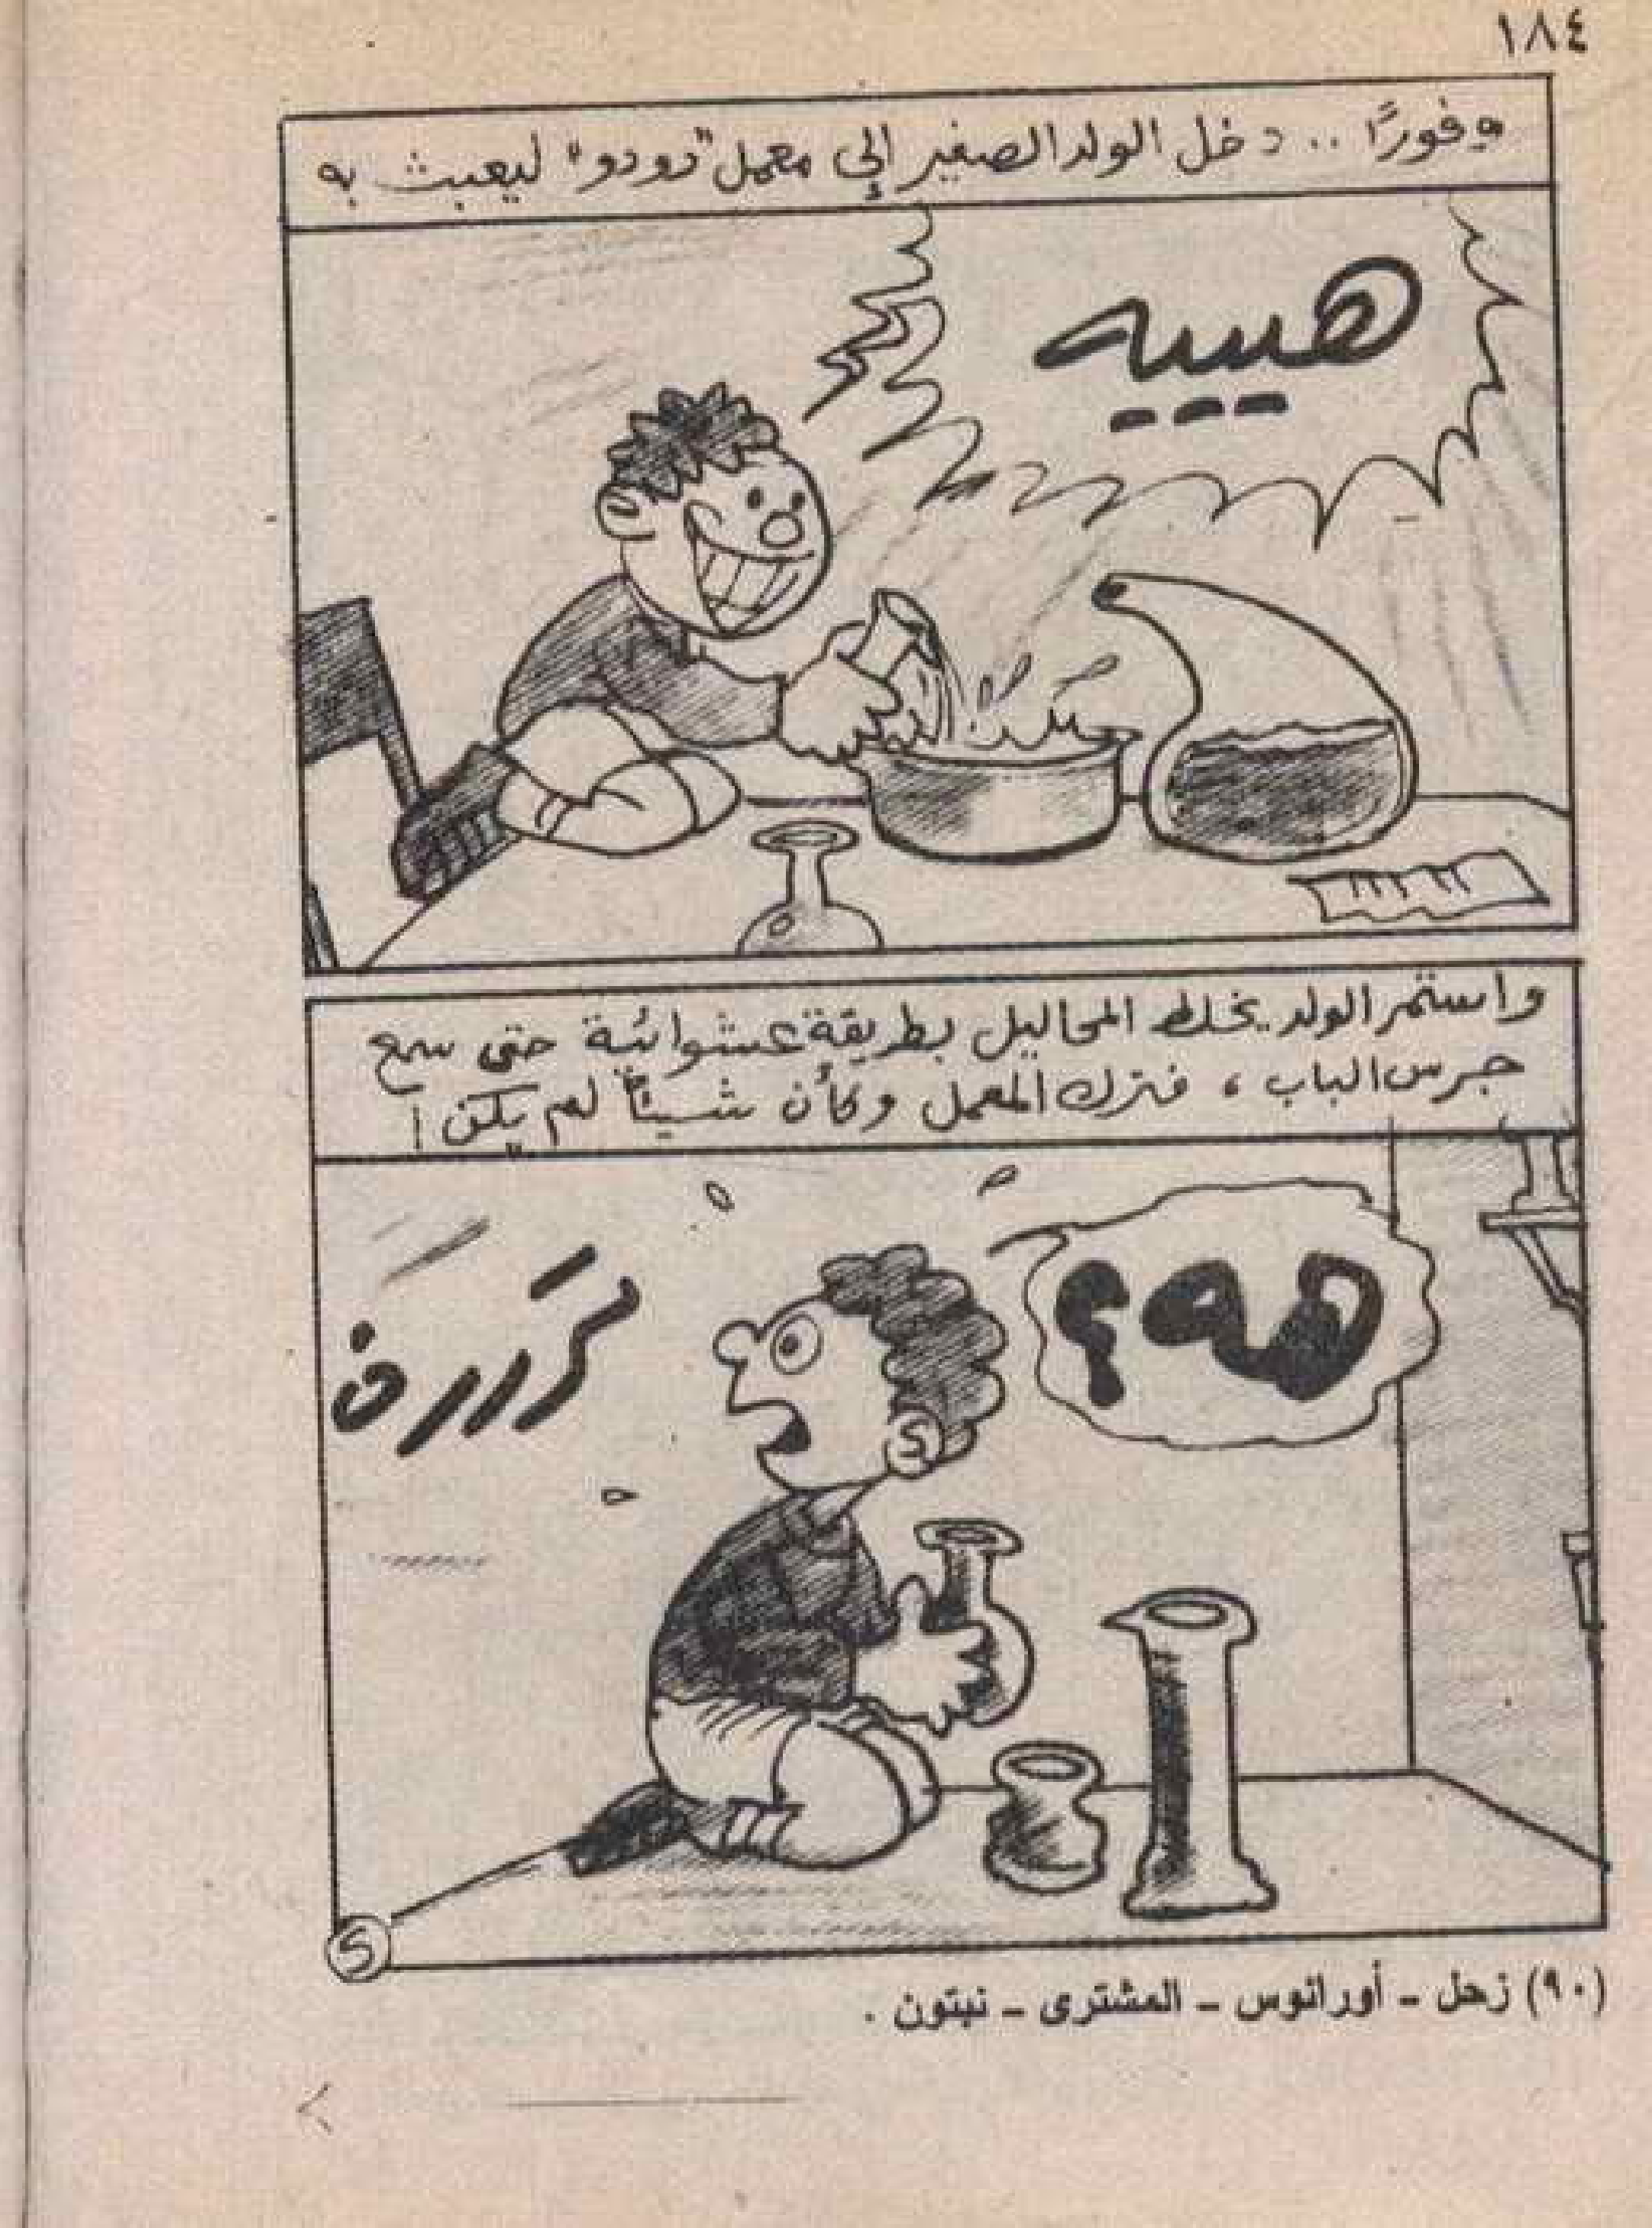 ١٨٤
وفورًا .. دخل الولد الصغير إلى معمل "دودو" ليعبث به
هييييه
واستمر الولد يخلط المحاليل بطريقة عشوائية حتى سمع
جرس الباب ، فترك المعمل وكأن شيئًا لم يكن !
هه ؟
تررررن
(٩٠) زحل - أورانوس - المشترى - نبتون .